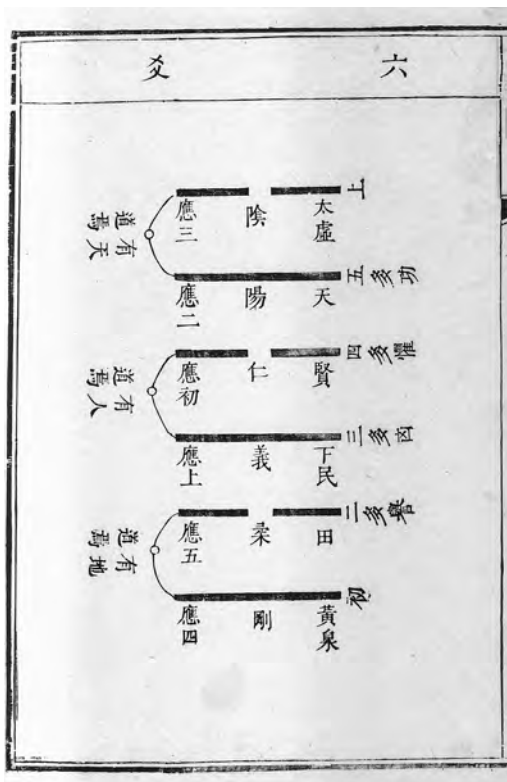 六爻
上
太虛 陰 應三
五多功
天 陽 應二
有天道焉
四多懼
賢 仁 應初
三多凶
下民 義 應上
有人道焉
二多譽
田 柔 應五
初
黃泉 剛 應四
有地道焉